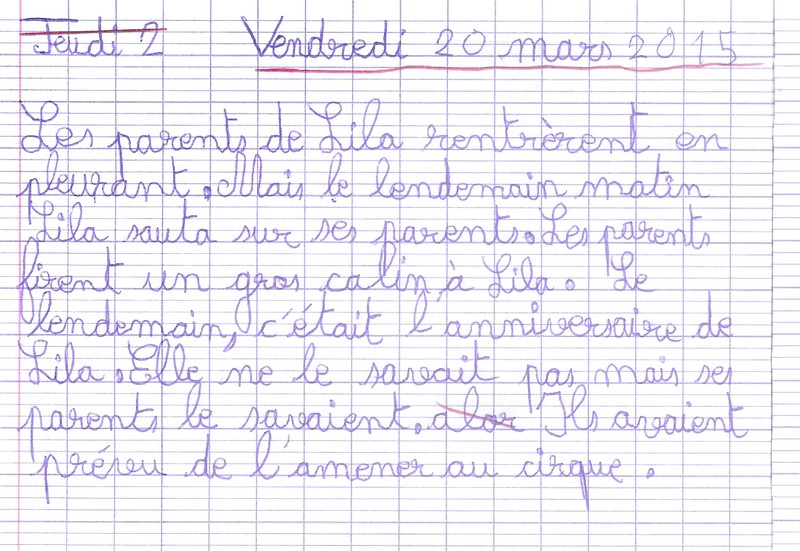 Jeudi 2 Vendredi 20 mars 2015
Les parents de Lila rentrèrent en
pleurant. Mais le lendemain matin
Lila sauta sur ses parents. Les parents
firent un gros calin à Lila. Le
lendemain, c'était l'anniversaire de
Lila. Elle ne le savait pas mais ses
parents le savaient. alor Ils avaient
prévu de l'amener au cirque.